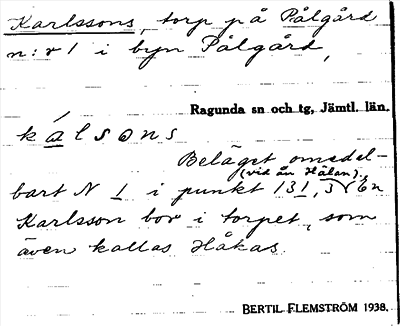 Karlssons, torp på Pålgård
n:r 1 i byn Pålgård,
Ragunda sn och tg, Jämtl. län.
kálsons
Beläget omedel-
(vid ån Hålan),
bart N 1 i punkt 131,3
Karlsson bor i torpet, som
även kallas Håkas.
BERTIL FLEMSTRÖM 1938.